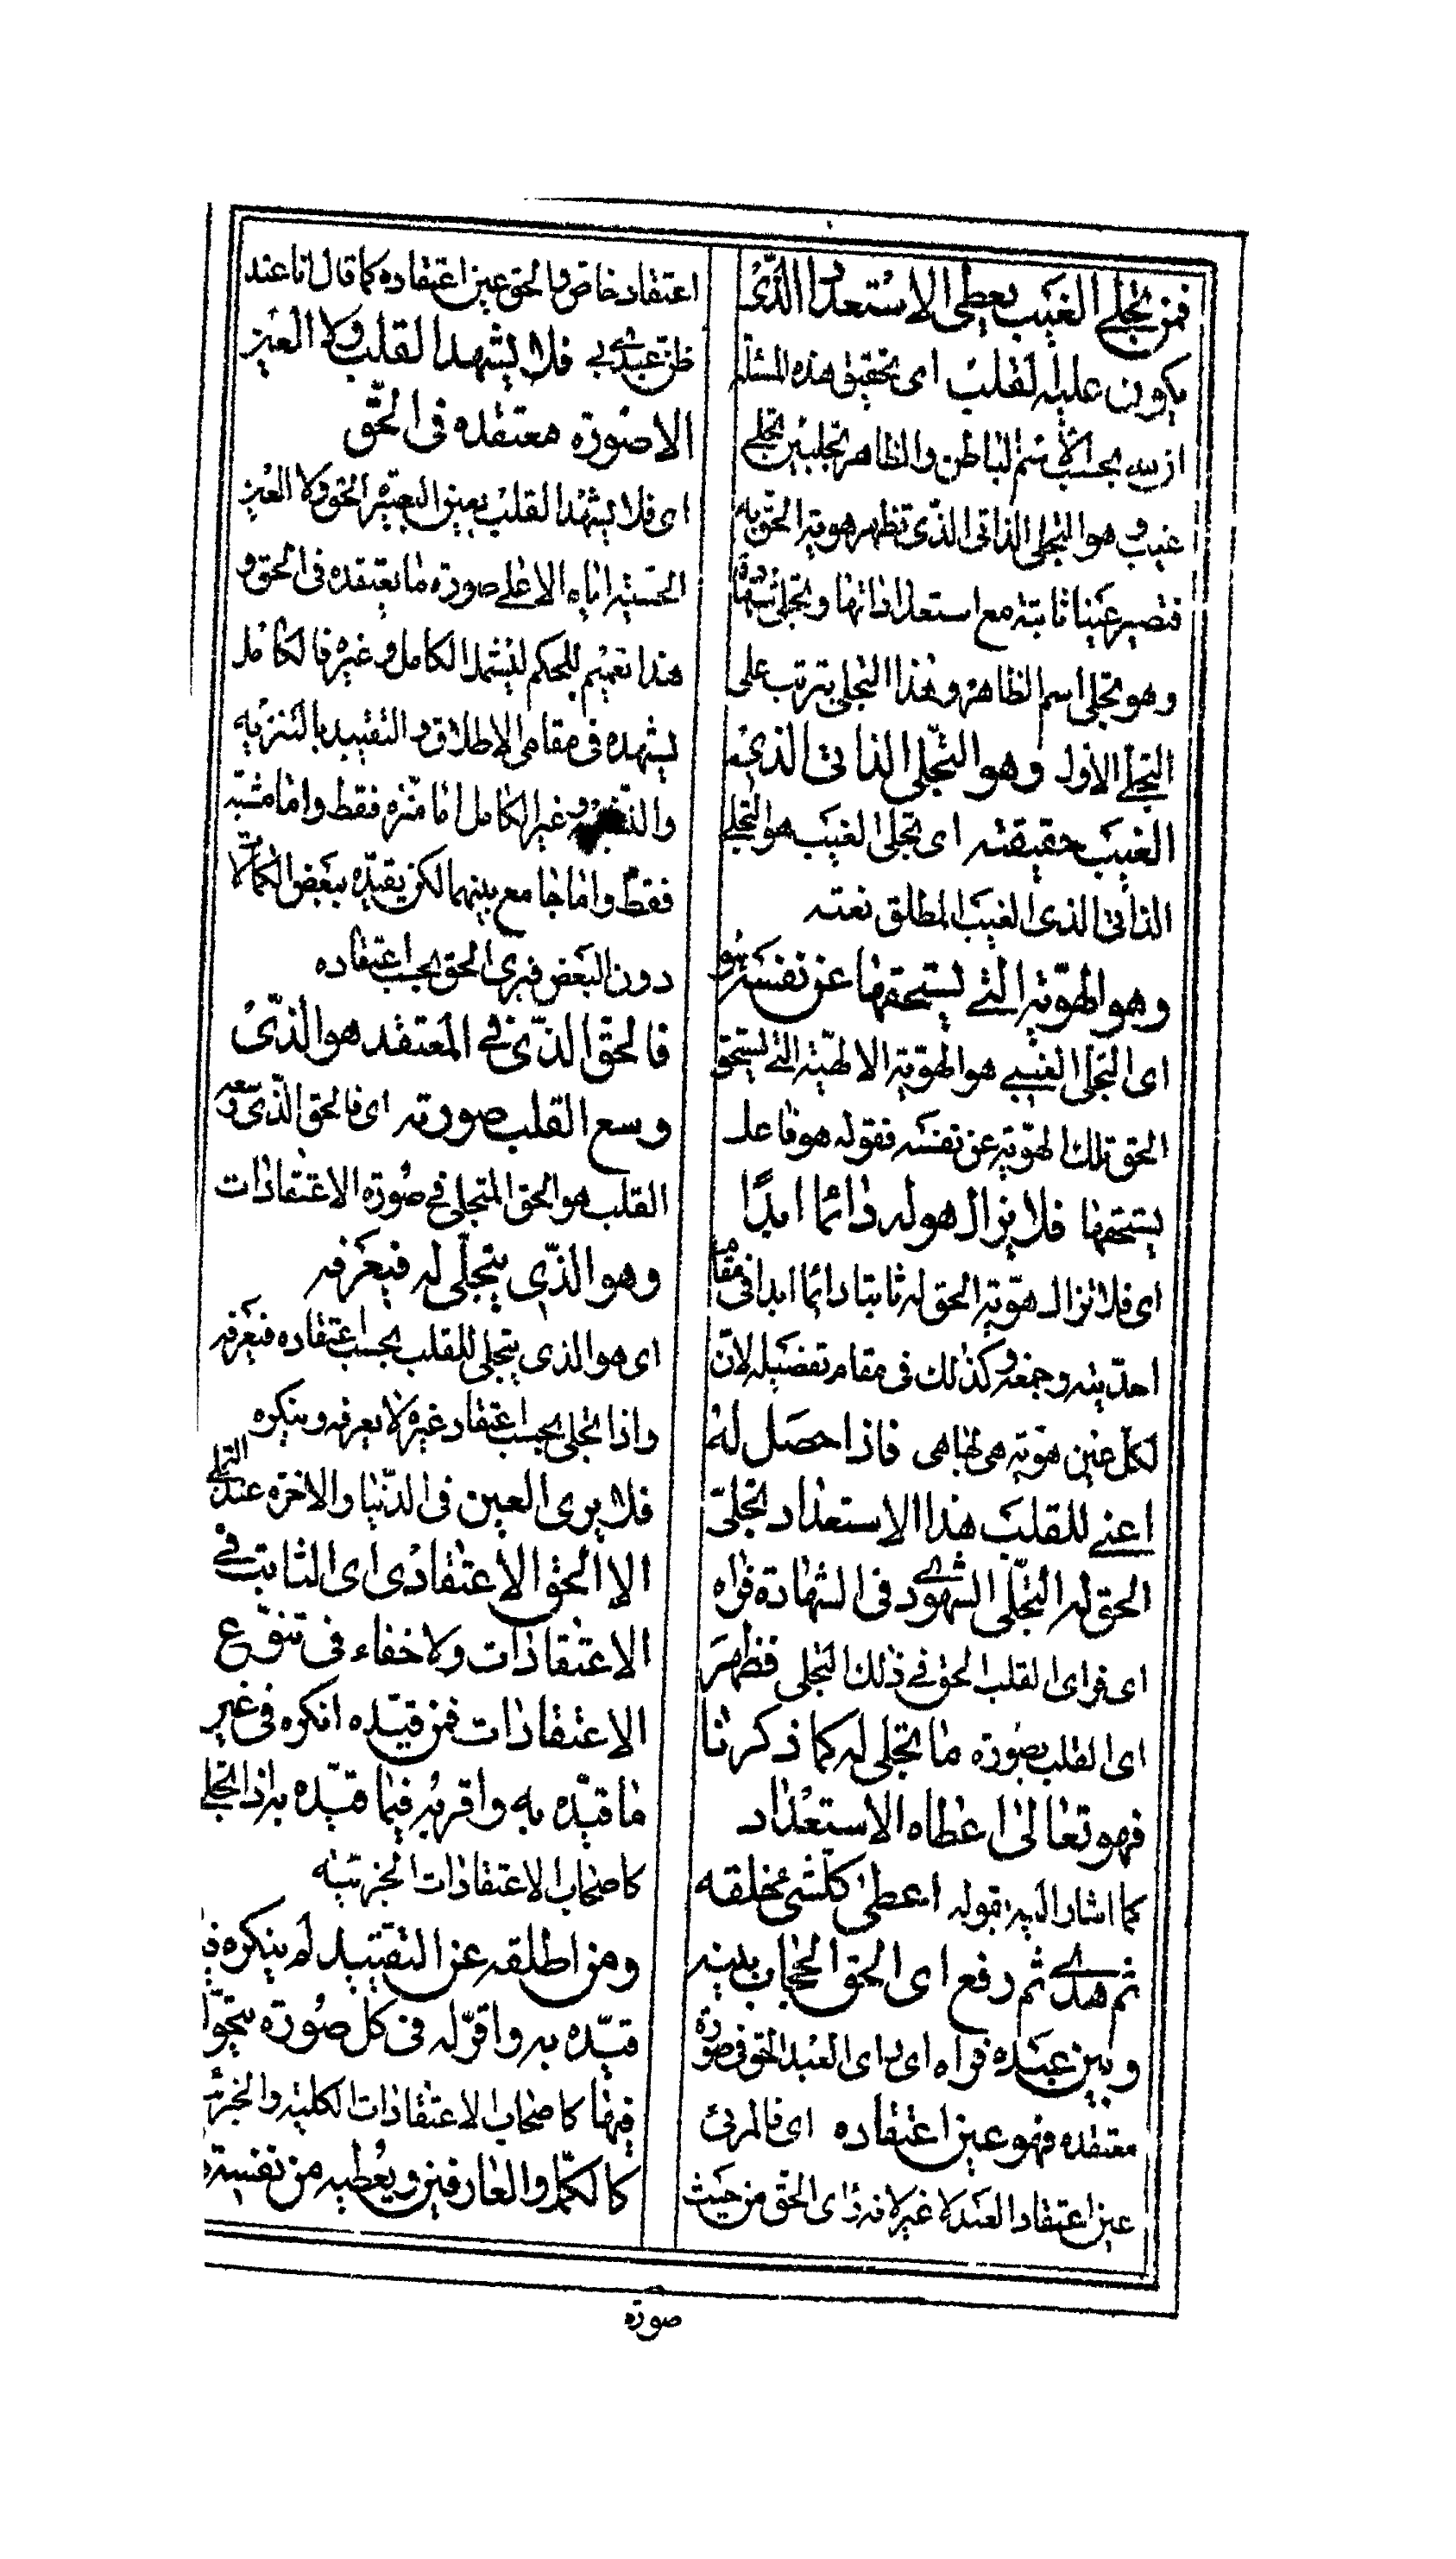 فمن تجلى الغيب يعطى الاستعداد الذى
يكون عليه القلب اى تحقيق هذه المسئلة
ان لله بحسب الاسم الباطن والظاهر تجليين تجلى
غيب وهو التجلى الذاتى الذى تظهر هوية الحق به
فتصير عينا ثابتة مع استعداداتها وتجلى شهادة
وهو تجلى اسم الظاهر وهذا التجلى يترتب على
التجلى الاول وهو التجلى الذاتى الذى
الغيب حقيقته اى تجلى الغيب هو التجلى
الذاتى الذى الغيب المطلق نعته
وهو الهوية التى يستحقها عن نفسه هو
اى التجلى الغيبى هو الهوية الالهية التى يستحق
الحق تلك الهوية عن نفسه فقوله هو فاعل
يستحقها فلا يزال هو له دائما ابدا
اى فلا تزال هوية الحق له ثابتا دائما ابدا فى مقام
احديته وجمعه وكذلك فى مقام تفصيله لان
لكل عين هوية هى بها هى فاذا حصل له
اعنى للقلب هذا الاستعداد تجلى
الحق له التجلى الشهودى فى الشهادة فراه
اى فراى القلب الحق فى ذلك التجلى فظهر
اى القلب بصورة ما تجلى له كما ذكرنا
فهو تعالى اعطاه الاستعداد
كما اشار اليه بقوله اعطى كل شئ خلقه
ثم هدى ثم رفع اى الحق الحجاب بينه
وبين عبده فراه اى راى العبد الحق فى صورة
معتقده فهو عين اعتقاده اى فالمرئى
عين اعتقاد العبد لا غيره لانه راى الحق من حيث
اعتقاد خاص فالحق عين اعتقاده كما قال انا عند
ظن عبدى بى فلا يشهد القلب ولا العين
الا صورة معتقده فى الحق
اى فلا يشهد القلب بعين البصيرة الحق ولا العين
الحسية اياه الا على صورة ما يعتقده فى الحق و
هذا تعميم للحكم ليشمل الكامل وغيره فالكامل
يشهده فى مقامى الاطلاق والتقييد بالتنزيه
والتشبيه وغير الكامل اما منزه فقط واما مشبه
فقط واما جامع بينهما لكن يقيده ببعض الكمالات
دون البعض فيرى الحق بحسب اعتقاده
فالحق الذى فى المعتقد هو الذى
وسع القلب صورته اى فالحق الذى وسعه
القلب هو الحق المتجلى فى صورة الاعتقادات
وهو الذى يتجلى له فيعرفه
اى هو الذى يتجلى للقلب بحسب اعتقاده فيعرفه
واذا تجلى بحسب اعتقاد غيره لا يعرفه وينكره
فلا يرى العين فى الدنيا والاخرة عند التجلى
الا الحق الاعتقادى اى الثابت فى
الاعتقادات ولا خفاء فى تنوع
الاعتقادات فمن قيده انكره فى غير
ما قيده به واقر به فيما قيده به اذا تجلى
كاصحاب الاعتقادات الجزئية
ومن اطلقه عن التقييد لم ينكره
قيده به واقر له فى كل صورة يتحول
فيها كاصحاب الاعتقادات الكلية والجزئية
كالكمل والعارفين ويعطيه من نفسه
صورة